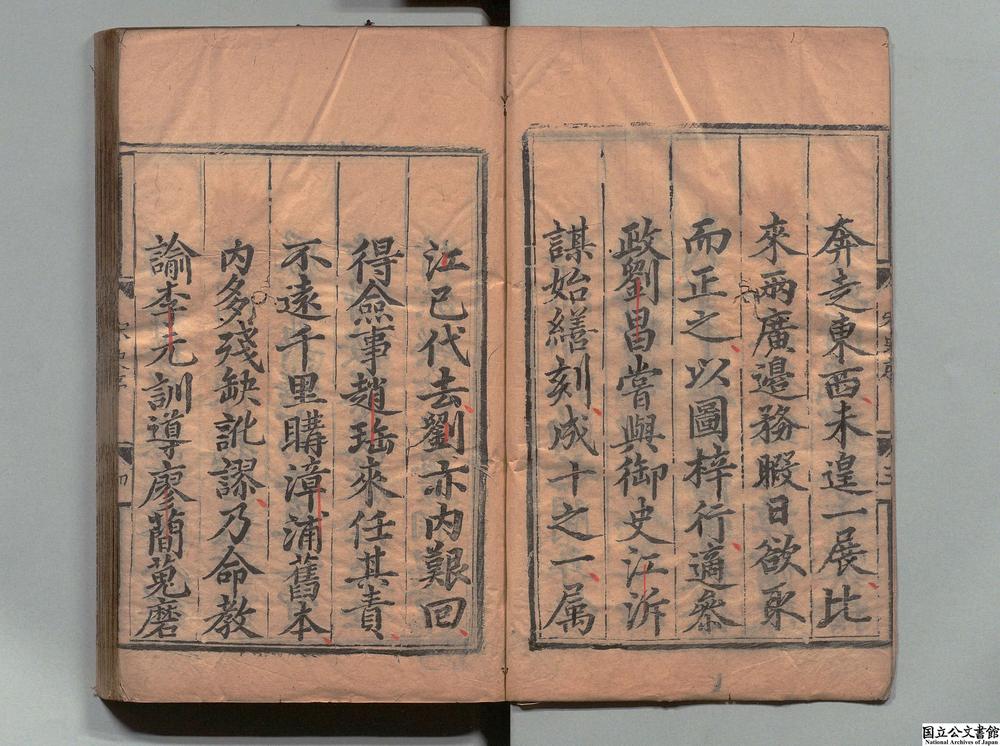 奔走東西未遑一展比
來兩廣邊務暇日欲取
而正之以圖梓行適叅
政劉昌嘗與御史江泝
謀始繕刻成十之一属
江已代去劉亦内艱回
得僉事趙珤來任其責
不遠千里購漳浦舊本
内多殘缺訛謬乃命教
諭李元訓導廖蘭蒐磨
国立公文書館
National Archives of Japan